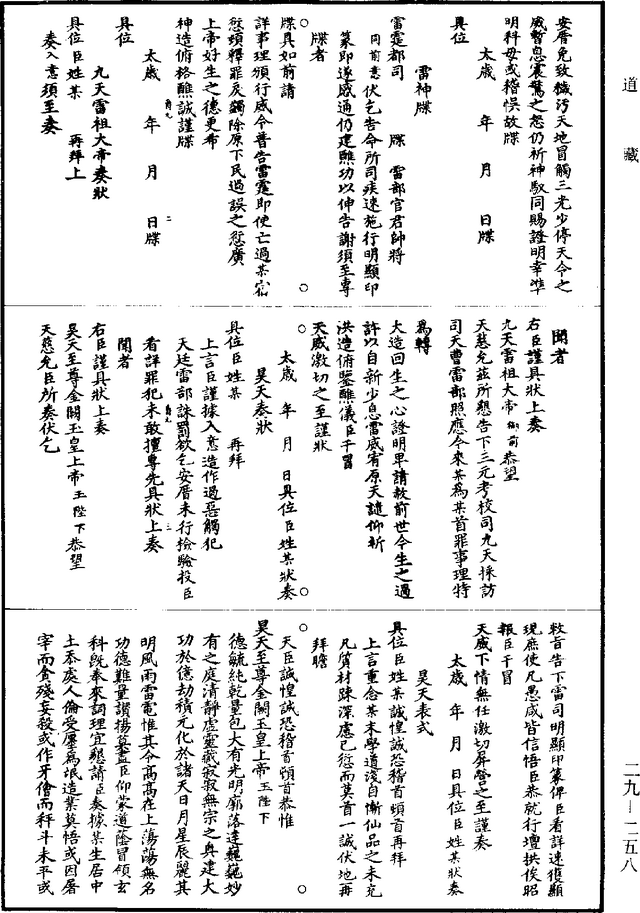 道藏
安厝免致穢污天地冒觸三光少停天令之
威暫息震驚之怒仍祈神馭同賜證明幸准
明科毋或稽悞故牒
太歲　年　月　日牒
具位
雷神牒
雷霆都司　牒　雷部官君帥將
同前意伏乞告命所司疾速施行明顯印
篆即遂感通仍建醮功以伸告謝須至專
牒者
牒具如前請
詳事理頒行威令普告雷霆即使亡過某宿
愆頓釋罪戾蠲除原下民過誤之愆廣
上帝好生之德更希
神造俯格醮誠謹牒
太歲　年　月　日牒
具位
九天雷祖大帝奏狀
具位臣姓某　再拜上
奏入意須至奏
聞者
右臣謹具狀上奏
九天雷祖大帝御前恭望
天慈允茲所懇告下三元考校司九天採訪
司天曹雷部照應今來某為某首罪事理特
為轉
大造回生之心證明卑請赦前世今生之過
許以自新少息雷威宥原天譴仰祈
洪造俯鑒醮儀臣干冒
天威激切之至謹狀
太歲　年　月　日具位臣姓某狀奏
昊天奏狀
具位臣姓某　再拜
上言臣謹據入意造作過惡觸犯
天廷雷部誅罰欲乞安厝未行檢驗投臣
看詳罪犯未敢擅專先具狀上奏
聞者
右臣謹具狀上奏
昊天至尊金闕玉皇上帝玉陛下恭望
天慈允臣所奏伏乞
敕旨告下雷司明顯印篆俾臣看詳速獲顯
現庶使凡愚咸皆信悟臣恭就行壇拱俟昭
報臣干冒
天威下情無任激切屏營之至謹奏
太歲　年　月　日具位臣姓某狀奏
昊天表式
具位臣姓某誠惶誠恐稽首頓首再拜
上言重念某未學道淺自慚仙品之未充
凡質材踈深慮已愆而莫首一誠伏地再
拜瞻
天臣誠惶誠恐稽首頓首恭惟
昊天至尊金闕玉皇上帝玉陛下
德毓純乾量包大有光明廓落達巍巍妙
有之庭清靜虛靈藏寂寂無宗之奧建大
功於億劫積元化於諸天日月星辰麗其
明風雨雷電惟其令高高在上蕩蕩無名
功德難量讚揚莫盡臣仰蒙道蔭冒領玄
科既奉來詞理宜懇請臣奏據某生居中
土忝處人倫受廛為氓造業莫悟或因屠
宰而貪殘妄殺或作牙儈而秤斗未平或
二九—二五八